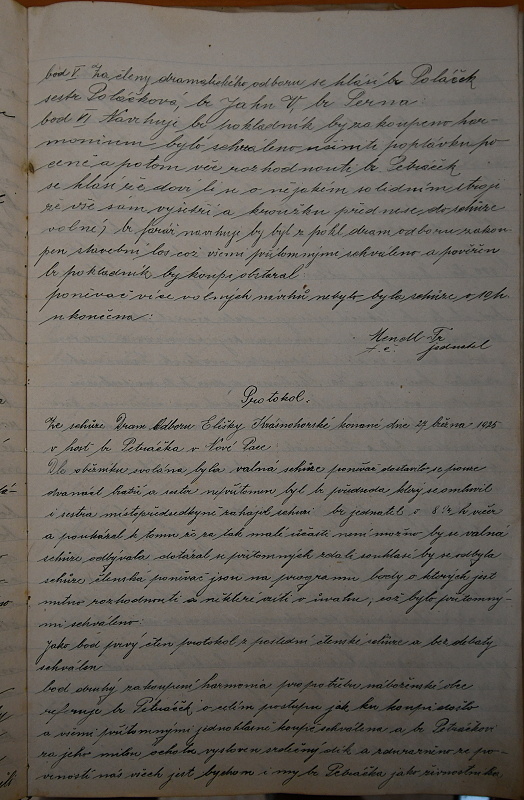 bod V. Za členy dramatického odboru se hlásí br Poláček
sestr. Poláčková, br Jahn V. br Serna:
bod VI Navrhuje br pokladník by zakoupeno har-
monium bylo schváleno učiniti poptávku po
ceně a potom věc rozhodnouti br Petráček
se hlásí že doví li se o nějakém solidním stroji
že vše sám vyšetří a kroužku přednese do schůze
volné) br farář navrhuje by byl z pokl dram odboru zakou-
pen stavební los což všemi přítomnými schváleno a pověřen
br pokladník by koupi obstaral:
poněvač více volných návrhů nebylo byla schůze o 10 h.
ukončena:
Mendl Fr
t. č. jednatel
Protokol.
Ze schůze Dram. Odboru Elišky Krásnohorské konané dne 27 března 1925
v host. br Petráčka v Nové Pace:
Dle oběžníku svolána byla valná schůze poněvač dostavilo se pouze
dvanáct bratří a sester nepřítomen byl br předseda který se omluvil
i sestra místopředsedkyně zahájil schůzi br jednatel o 8¼ h večer
a poukázal k tomu že za tak malé účasti není možno by se valná
schůze odbývala dotázal se přítomných zdali souhlasí by se odbyla
schůze členská poněvač jsou na programu body o kterých jest
nutno rozhodnouti a některé vzíti v úvahu, což bylo přítomný-
mi schváleno:
Jako bod prvý čten protokol z poslední členské schůze a bez debaty
schválen
bod druhý zakoupení harmonia pro potřebu náboženské obce
referuje br Petráček o celém postupu jak ku koupi došlo
a všemi přítomnými jednohlasně koupě schválena a br Petráčkovi
za jeho milou ochotu vysloven srdečný dík a zdůrazněno že po-
vinností nás všech jest bychom i my br Petráčka jako živnostníka